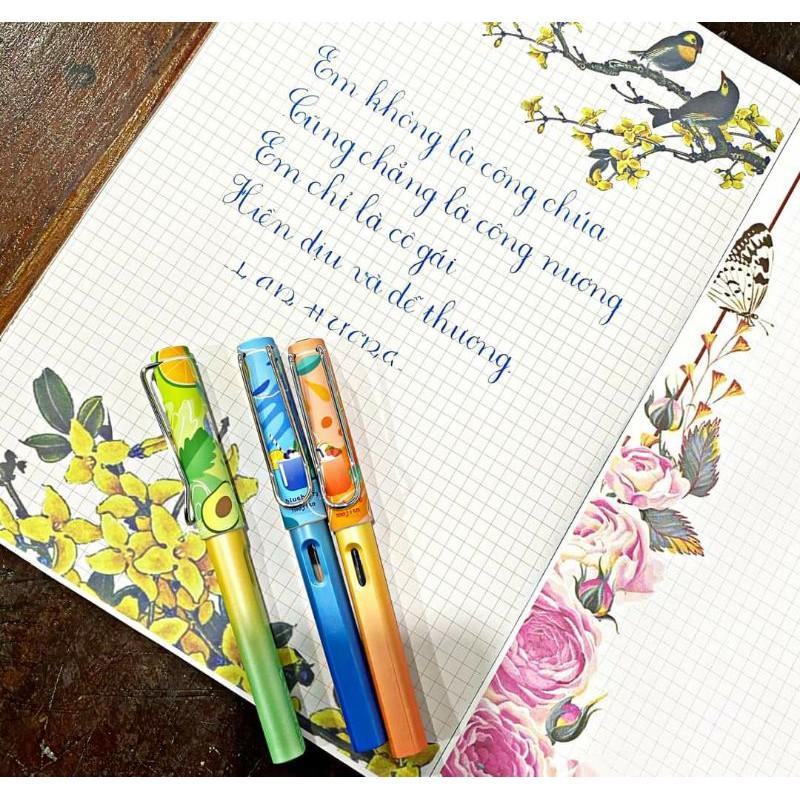 Em không là công chúa
Cũng chẳng là công nương
Em chỉ là cô gái
Hiền dịu và dễ thương.
LAN HƯƠNG
mojito